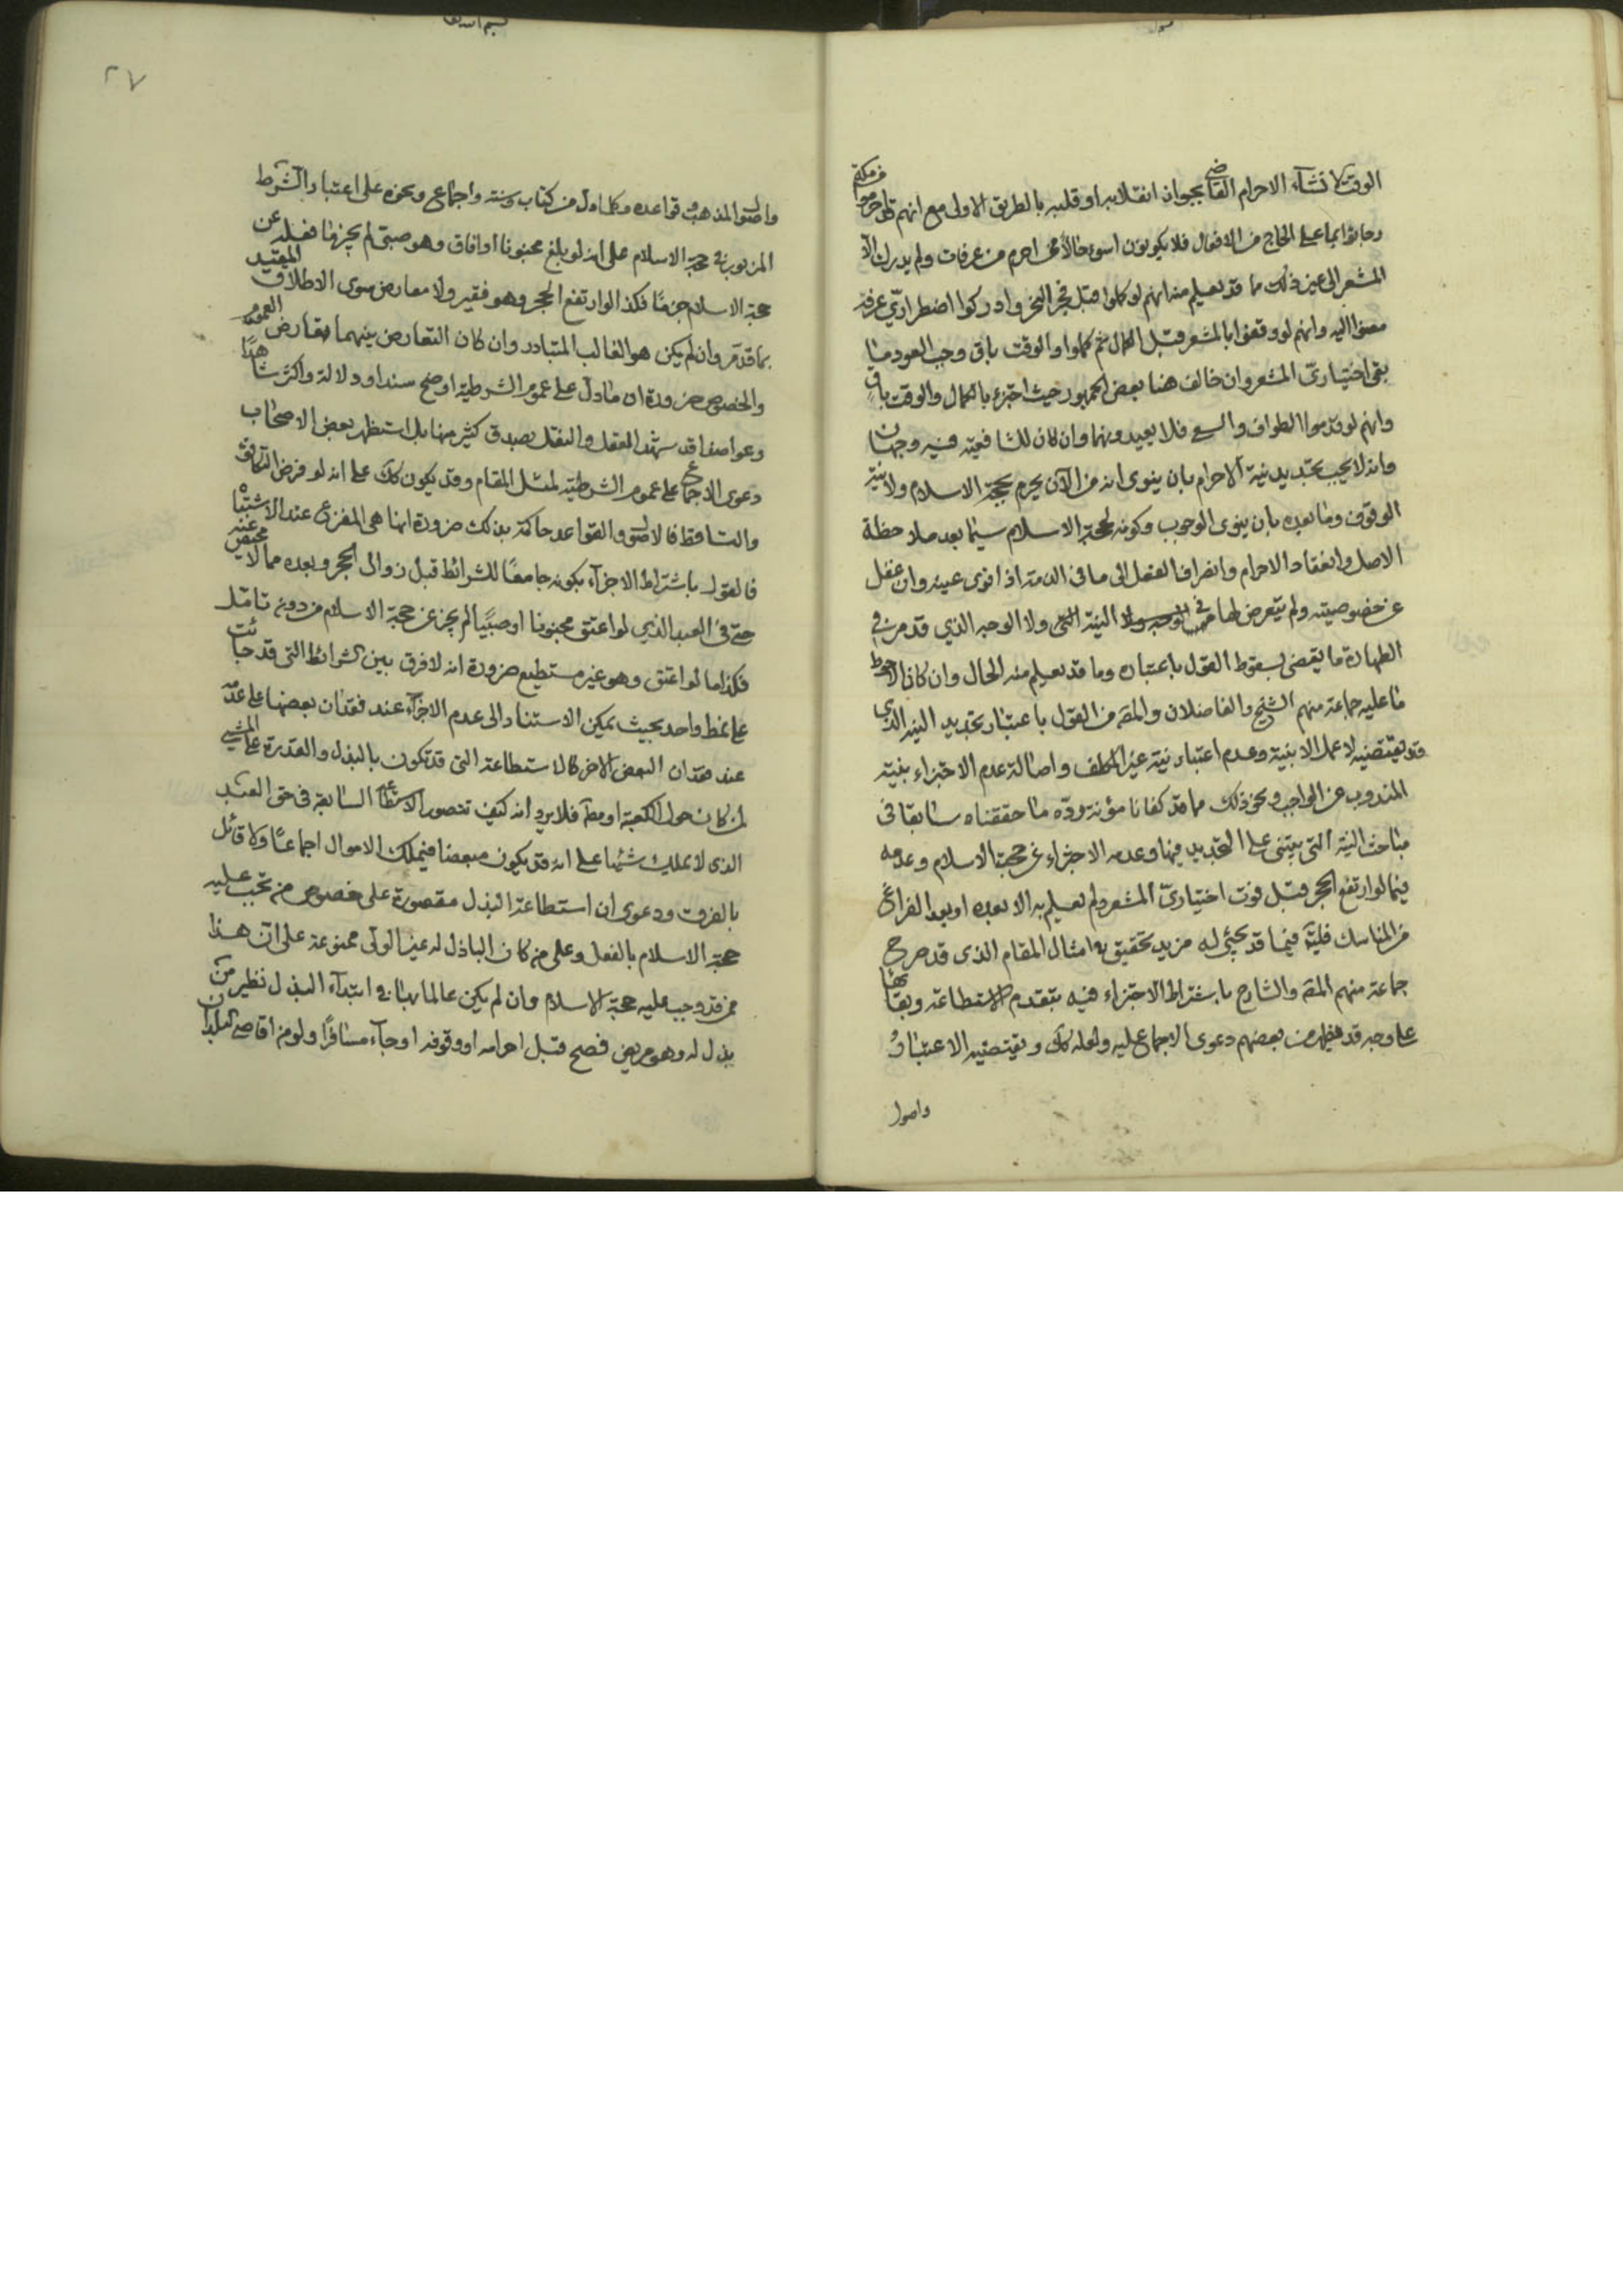 الوقت لانشاء الاحرام القاضي بجواز انقلابه او قلبه بالطريق الاولى مع انهم قد احرموا من مكة
وجاؤا بما على الحاج من الافعال فلا يكونون اسوء حالا ممن احرم من عرفات ولم يدرك الا
المشعر الى غير ذلك مما قد يعلم منه انهم لو كملوا قبل فجر النحر وادركوا اضطراري عرفة
مضوا اليه وانهم لو وقفوا بالمشعر قبل الكمال ثم كملوا والوقت باق وجب العود ما
بقي اختياري المشعر وان خالف هنا بعض الجمهور حيث اجتزء بالكمال والوقت باق
وانهم لو قدموا الطواف والسعي فلا يعيدونهما وان كان للشافعية فيه وجهان
وانه لا يجب تجديد نية الاحرام بان ينوى انه من الآن يحرم بحجة الاسلام ولا نية
الوقوف وما بعده بان ينوى الوجوب وكونه لحجة الاسلام سيما بعد ملاحظة
الاصل وانعقاد الاحرام وانصراف الفعل الى ما في الذمة اذا نوى عينه وان غفل
عن خصوصيته ولم يتعرض لها في النية ولا الوجه الذي قد مر في
الطهارة ما يقضى بسقوط القول باعتباره وما قد يعلم منه الحال وان كان الاحوط
ما عليه جماعة منهم الشيخ والفاضلان والمقـ من القول باعتبار تجديد النية الذي
قد يقتضيه لا عمل الا بنية وعدم اعتبار نية غير المكلف واصالة عدم الاجتزاء بنية
المندوب عن الواجب ونحو ذلك مما قد كفانا مؤنة ردّه ما حققناه سابقا في
مباحث النية التي يبتنى على التجديد فيها وعدمه الاجتزاء عن حجة الاسلام وعدمه
فيما لو ارتفع الحجر قبل فوت اختياري المشعر ولم يعلم به الا بعده او بعد الفراغ
من المناسك فليتـ فيما قد يجئ له مزيد تحقيق به امثال المقام الذي قد صرح
جماعة منهم المقـ والشارح باشتراط الاجتزاء فيه بتقدم الاستطاعة وبقائها
على وجه قد يظهر من بعضهم دعوى الاجماع عليه ولعله كك ويقتضيه الاعتبار
واصول
٢٧
واصول المذهب وقواعده وكلما دل من كتاب وسنة واجماع ونحوه على اعتبار الشرط
المزبور في حجة الاسلام على انه لو بلغ مجنونا او افاق وهو صبي لم يجزهما فعله عن
حجة الاسلام جزما فكذا لو ارتفع الحجر وهو فقير ولا معارض سوى الاطلاق المقيد
بما قد مر وان لم يكن هو الغالب المتبادر وان كان التعارض بينهما تعارض العموم
والخصوص ضرورة ان ما دل على عموم الشرطية اوضح سندا ودلالة واكثر شاهدا
وعواضدا قد شهد العقل والنقل بصدق كثير منها بل استظهر بعض الاصحاب
دعوى الاجماع على عموم الشرطية لمثل المقام وقد يكون كك على انه لو فرض التكافؤ
والتساقط فالاصول والقواعد حاكمة بذلك ضرورة انها هي المفزع عند الاشتباه
فالقول باشتراط الاجزاء بكونه جامعا للشرائط قبل زوال الحجر وبعده مما لا محيص عنه
حتى في العبد الذي لو اعتق مجنونا او صبيا لم يجز عن حجة الاسلام من دون تامل
فكذا ما لو اعتق وهو غير مستطيع ضرورة انه لا فرق بين الشرائط التي قد جائت
على نمط واحد بحيث يمكن الاستناد الى عدم الاجزاء عند فقدان بعضها على عدمه
عند فقدان البعض الاخر كالاستطاعة التي قد تكون بالبذل والقدرة على المشي
لمن كان حول الكعبة او مطـ فلا يرد انه كيف تتصور الاستطاعة السابقة في حق العبد
الذي لا يملك شيئا على انه قد يكون مبعضا فيملك الاموال اجماعا ولا قائل
بالفرق ودعوى ان استطاعة البذل مقصورة على خصوص من تجب عليه
حجة الاسلام بالفعل وعلى من كان الباذل له غير المولى ممنوعة على ان هذا
ممن قد وجب عليه حجة الاسلام وان لم يكن عالما بها في ابتداء البذل نظير من
بذل له وهو مريض فصح قبل احرامه او وقوفه او جاء مسافرا ولو من اقاصي البلدان